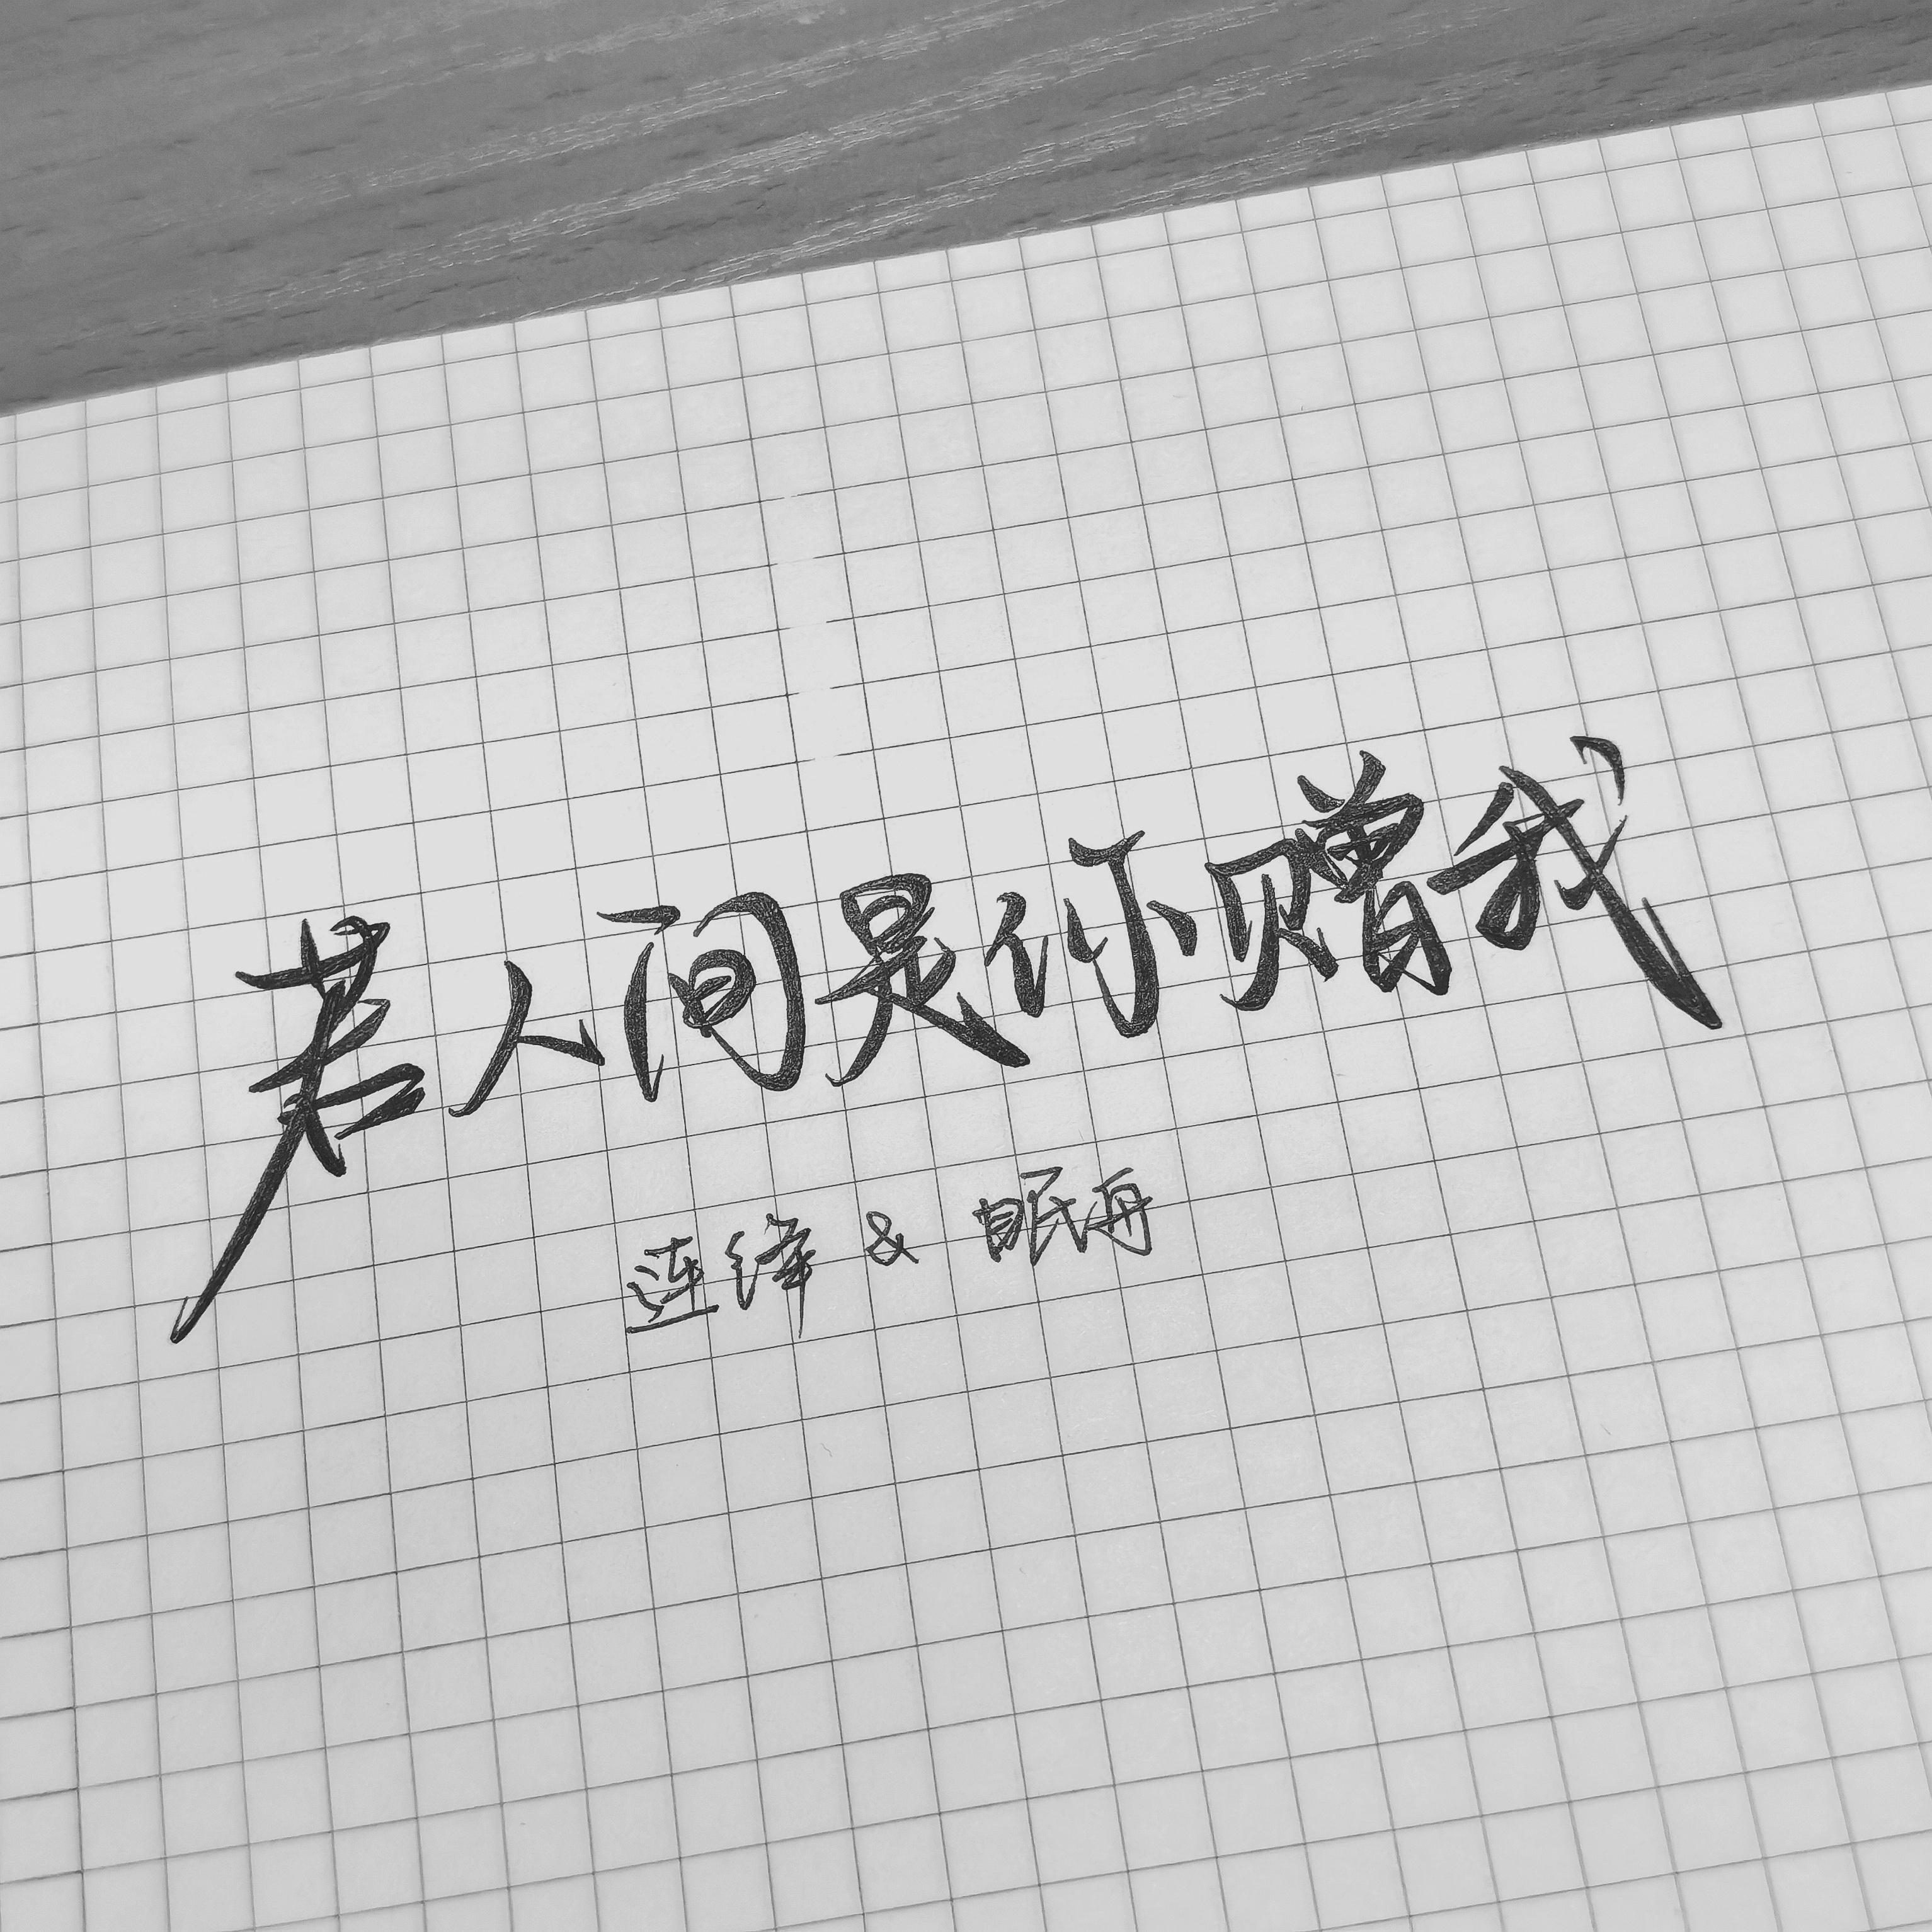 若人间是你赠我
连绛 & 眠舟